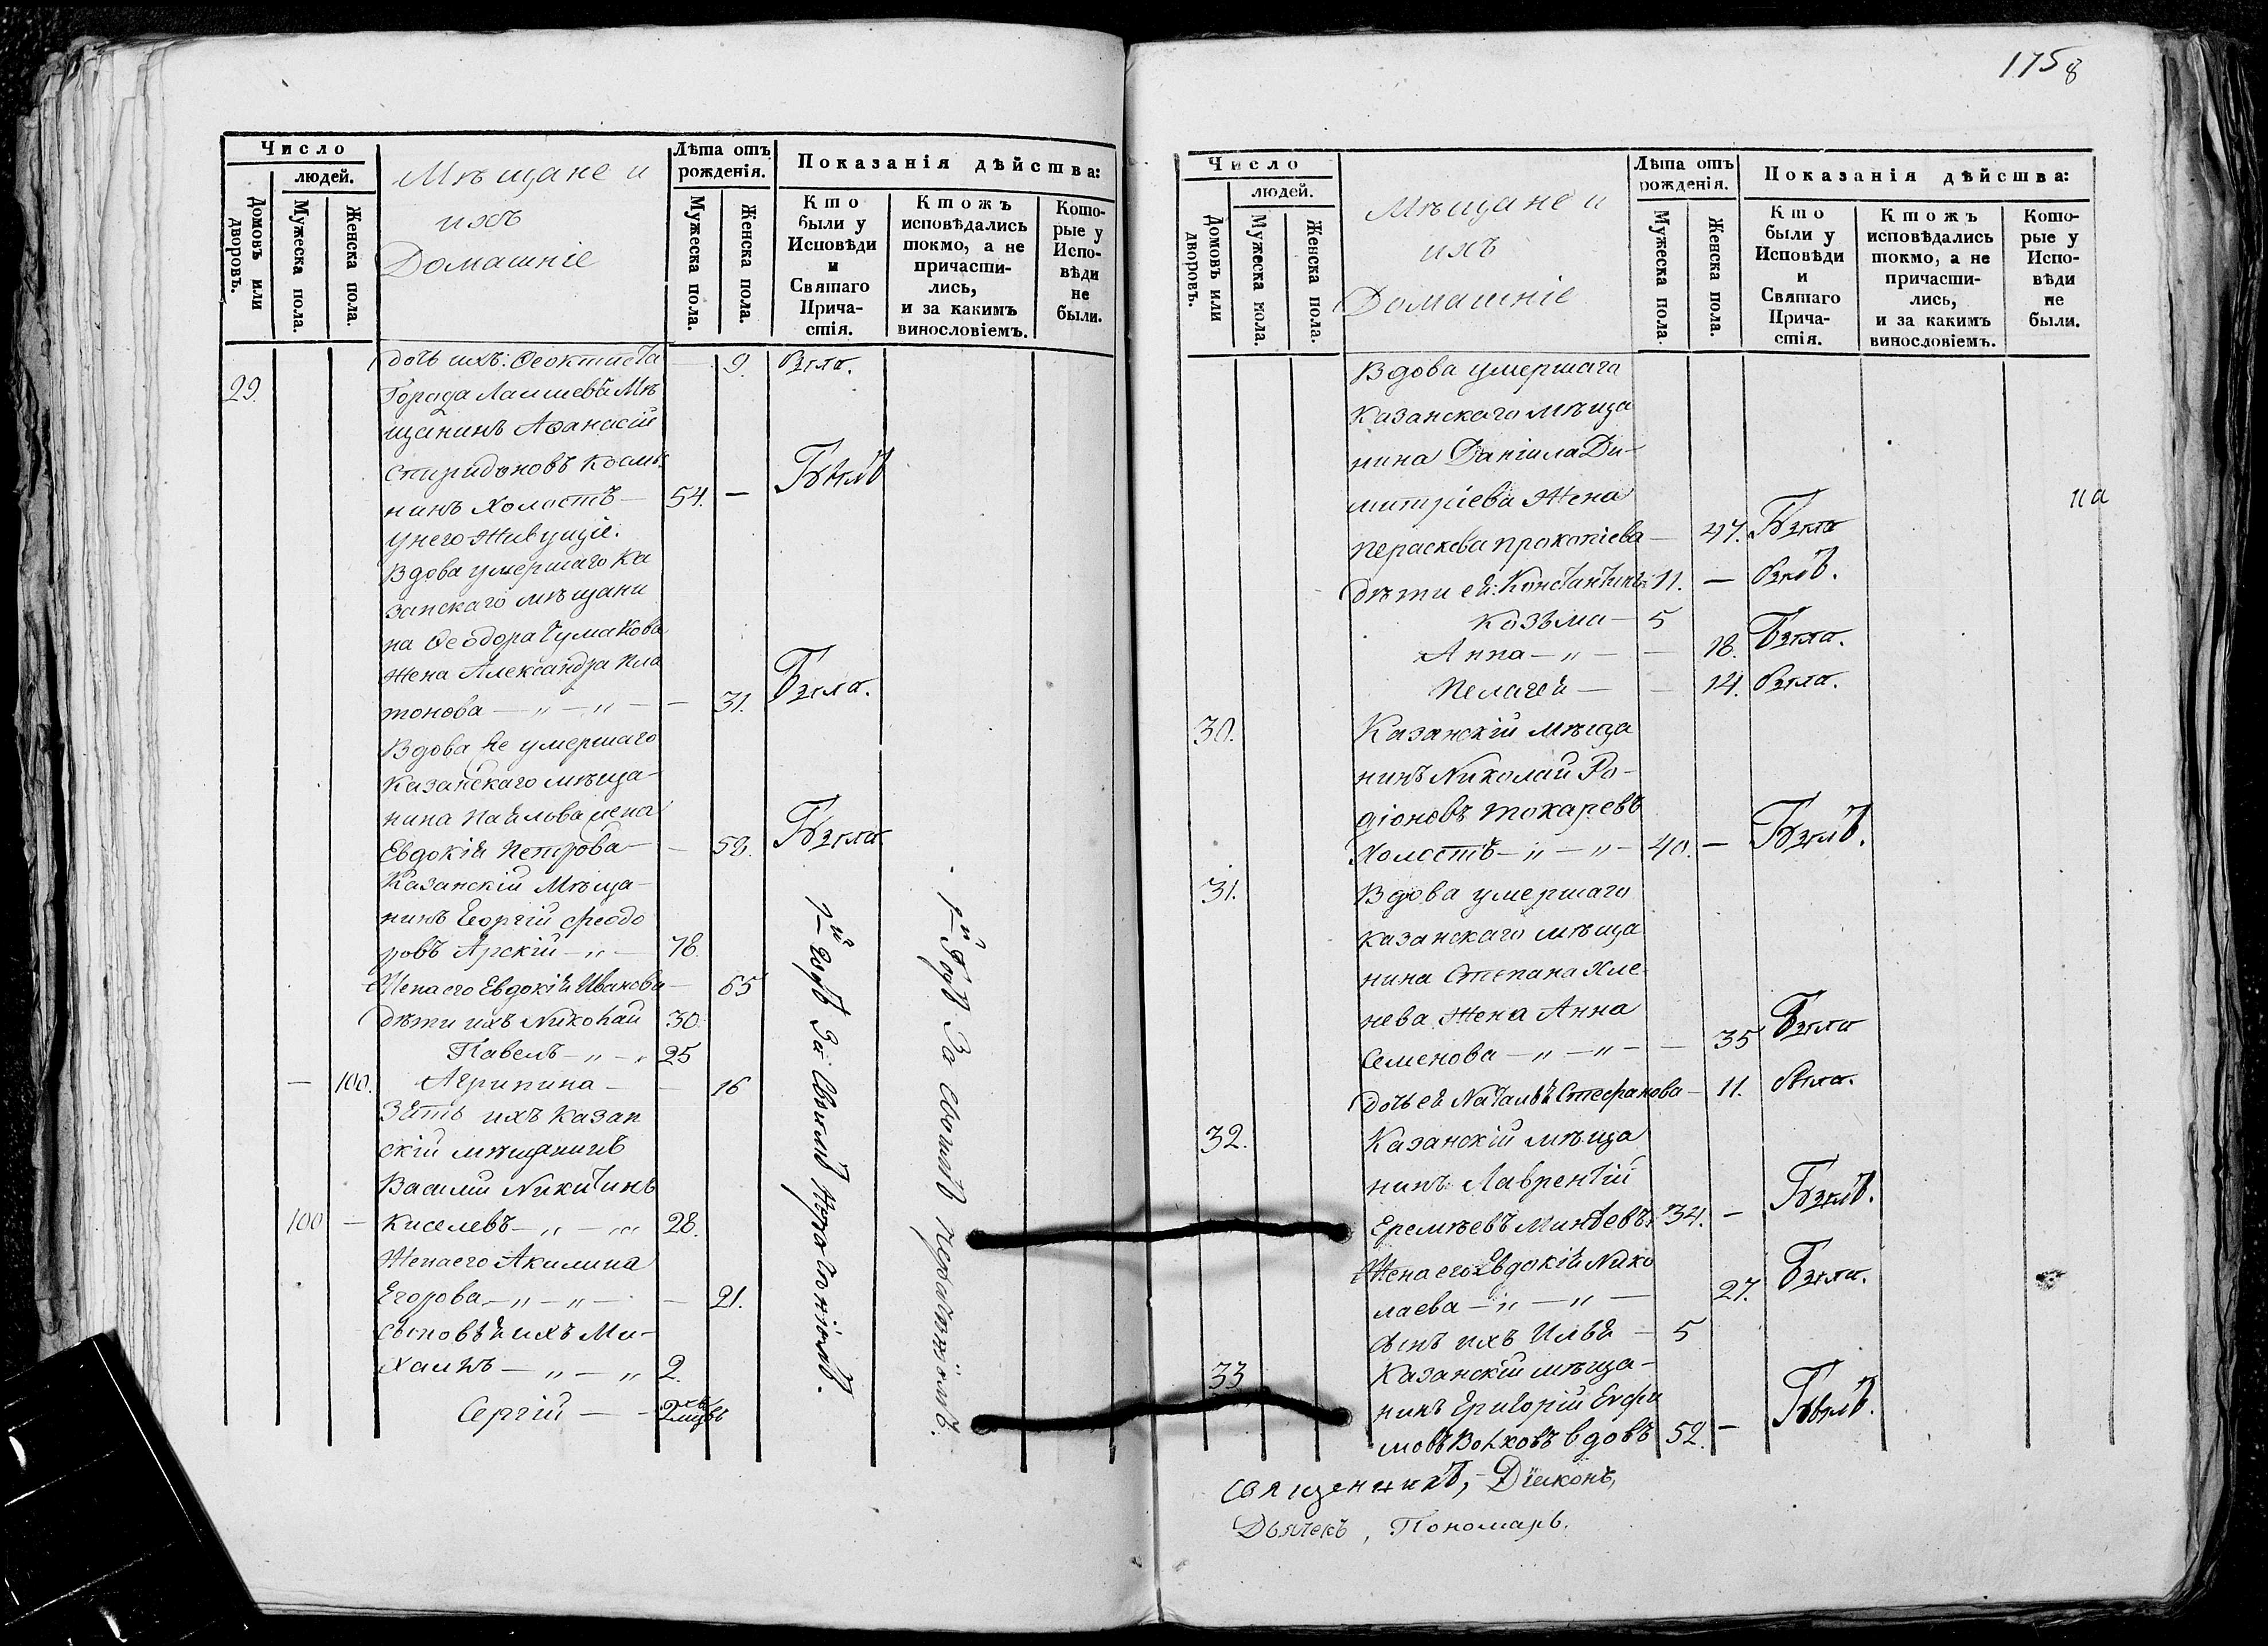 Число
людей.
Домовъ или дворовъ.
Мужеска пола.
Женска пола.
Мѣщане и
ихъ
Домашніе
Лѣта отъ рожденія.
Мужеска пола.
Женска пола.
Показанія дѣйства:
Кто были у Исповѣди и Святаго Прича-стія.
Ктожъ исповѣдались токмо, а не причасти-лись, и за какимъ винословіемъ.
Кото-рые у Испо-вѣди не были.
дочь ихъ: Феоктиста — 9. была.
29. Города Лаишева Мѣ
щанинъ Афанасій
Спиридоновъ Косми-
нинъ холостъ — 54. — Былъ
у него Живущіе.
Вдова умершаго Ка
занскаго мѣщани
на Феодора Чумакова
Жена Александра Пла
тонова — „ — „ — — 31. Была.
Вдова же умершаго
Казанскаго мѣща-
нина жена
Евдокія Петрова — — 58. Была
Казанскій Мѣща-
нинъ Георгій Феодо
ровъ Арскій — „ — 78.
Жена его Евдокія Иванова — 65
дѣти ихъ Николай 30.
Павелъ — „ — „ 25
— 100. Агрипина — — 16
Зять ихъ Казан
скій мѣщанинъ
Василій Никитинъ
100 — Киселевъ — „ — „ 28.
Жена его Акилина
Егорова — „ — „ — — 21.
сыновья ихъ Ми-
хаилъ — „ — „ 2.
Сергій — — 2хъ мцвъ
1й Годъ За своимъ
1й Годъ За своимъ
1758
Число
людей.
Домовъ или дворовъ.
Мужеска пола.
Женска пола.
Мѣщане и
ихъ
Домашніе
Лѣта отъ рожденія.
Мужеска пола.
Женска пола.
Показанія дѣйсшва:
Кто были у Исповѣди и Святаго Прича-стія.
Ктожъ исповѣдались токмо, а не причасти-лись, и за какимъ винословіемъ.
Кото-рые у Испо-вѣди не были.
Вдова умершаго
Казанскаго мѣща
нина Даніила Ди-
митріева Жена
Пераскева Прокопіева — 47. Была
дѣти ея: Константинъ 11. — былъ.
Козьма — 5
Анна — „ — — 18. Была.
Пелагея — — 14. была.
30. Казанскій мѣща
нинъ Николай Ро-
діоновъ Токаревъ
Холостъ — „ — „ — 40. — Былъ.
31. Вдова умершаго
казанскаго мѣща
нина Степана Хле-
нева Жена Анна
Семенова — „ — „ — — 35 Была
дочь ея Наталья Стефанова — 11. была.
32. Казанскій мѣща
нинъ Лаврентій
Еремѣевъ Минѣевъ 34. — Былъ.
Жена его Евдокія Нико
лаева — „ — „ — 27. Была.
сынъ ихъ Илья — 5
33 Казанскій мѣща-
нинъ Григорій Евфи
мовъ Волковъ вдовъ 52. — Былъ.
Священникъ, Діаконъ,
Дьячекъ, Пономарь.